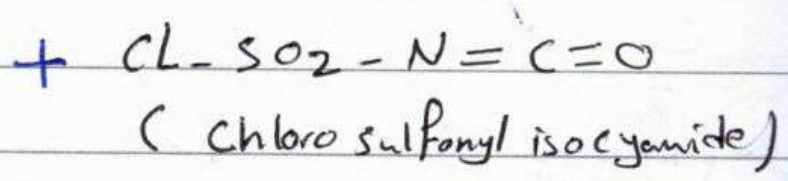 + CL - SO2 - N = C = O
( Chloro sulfonyl isocyamide)